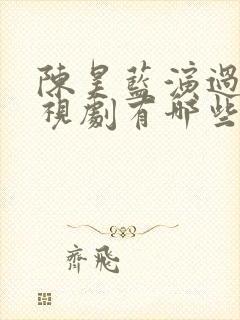 陳昊藍演過
視劇有哪些
齊飛